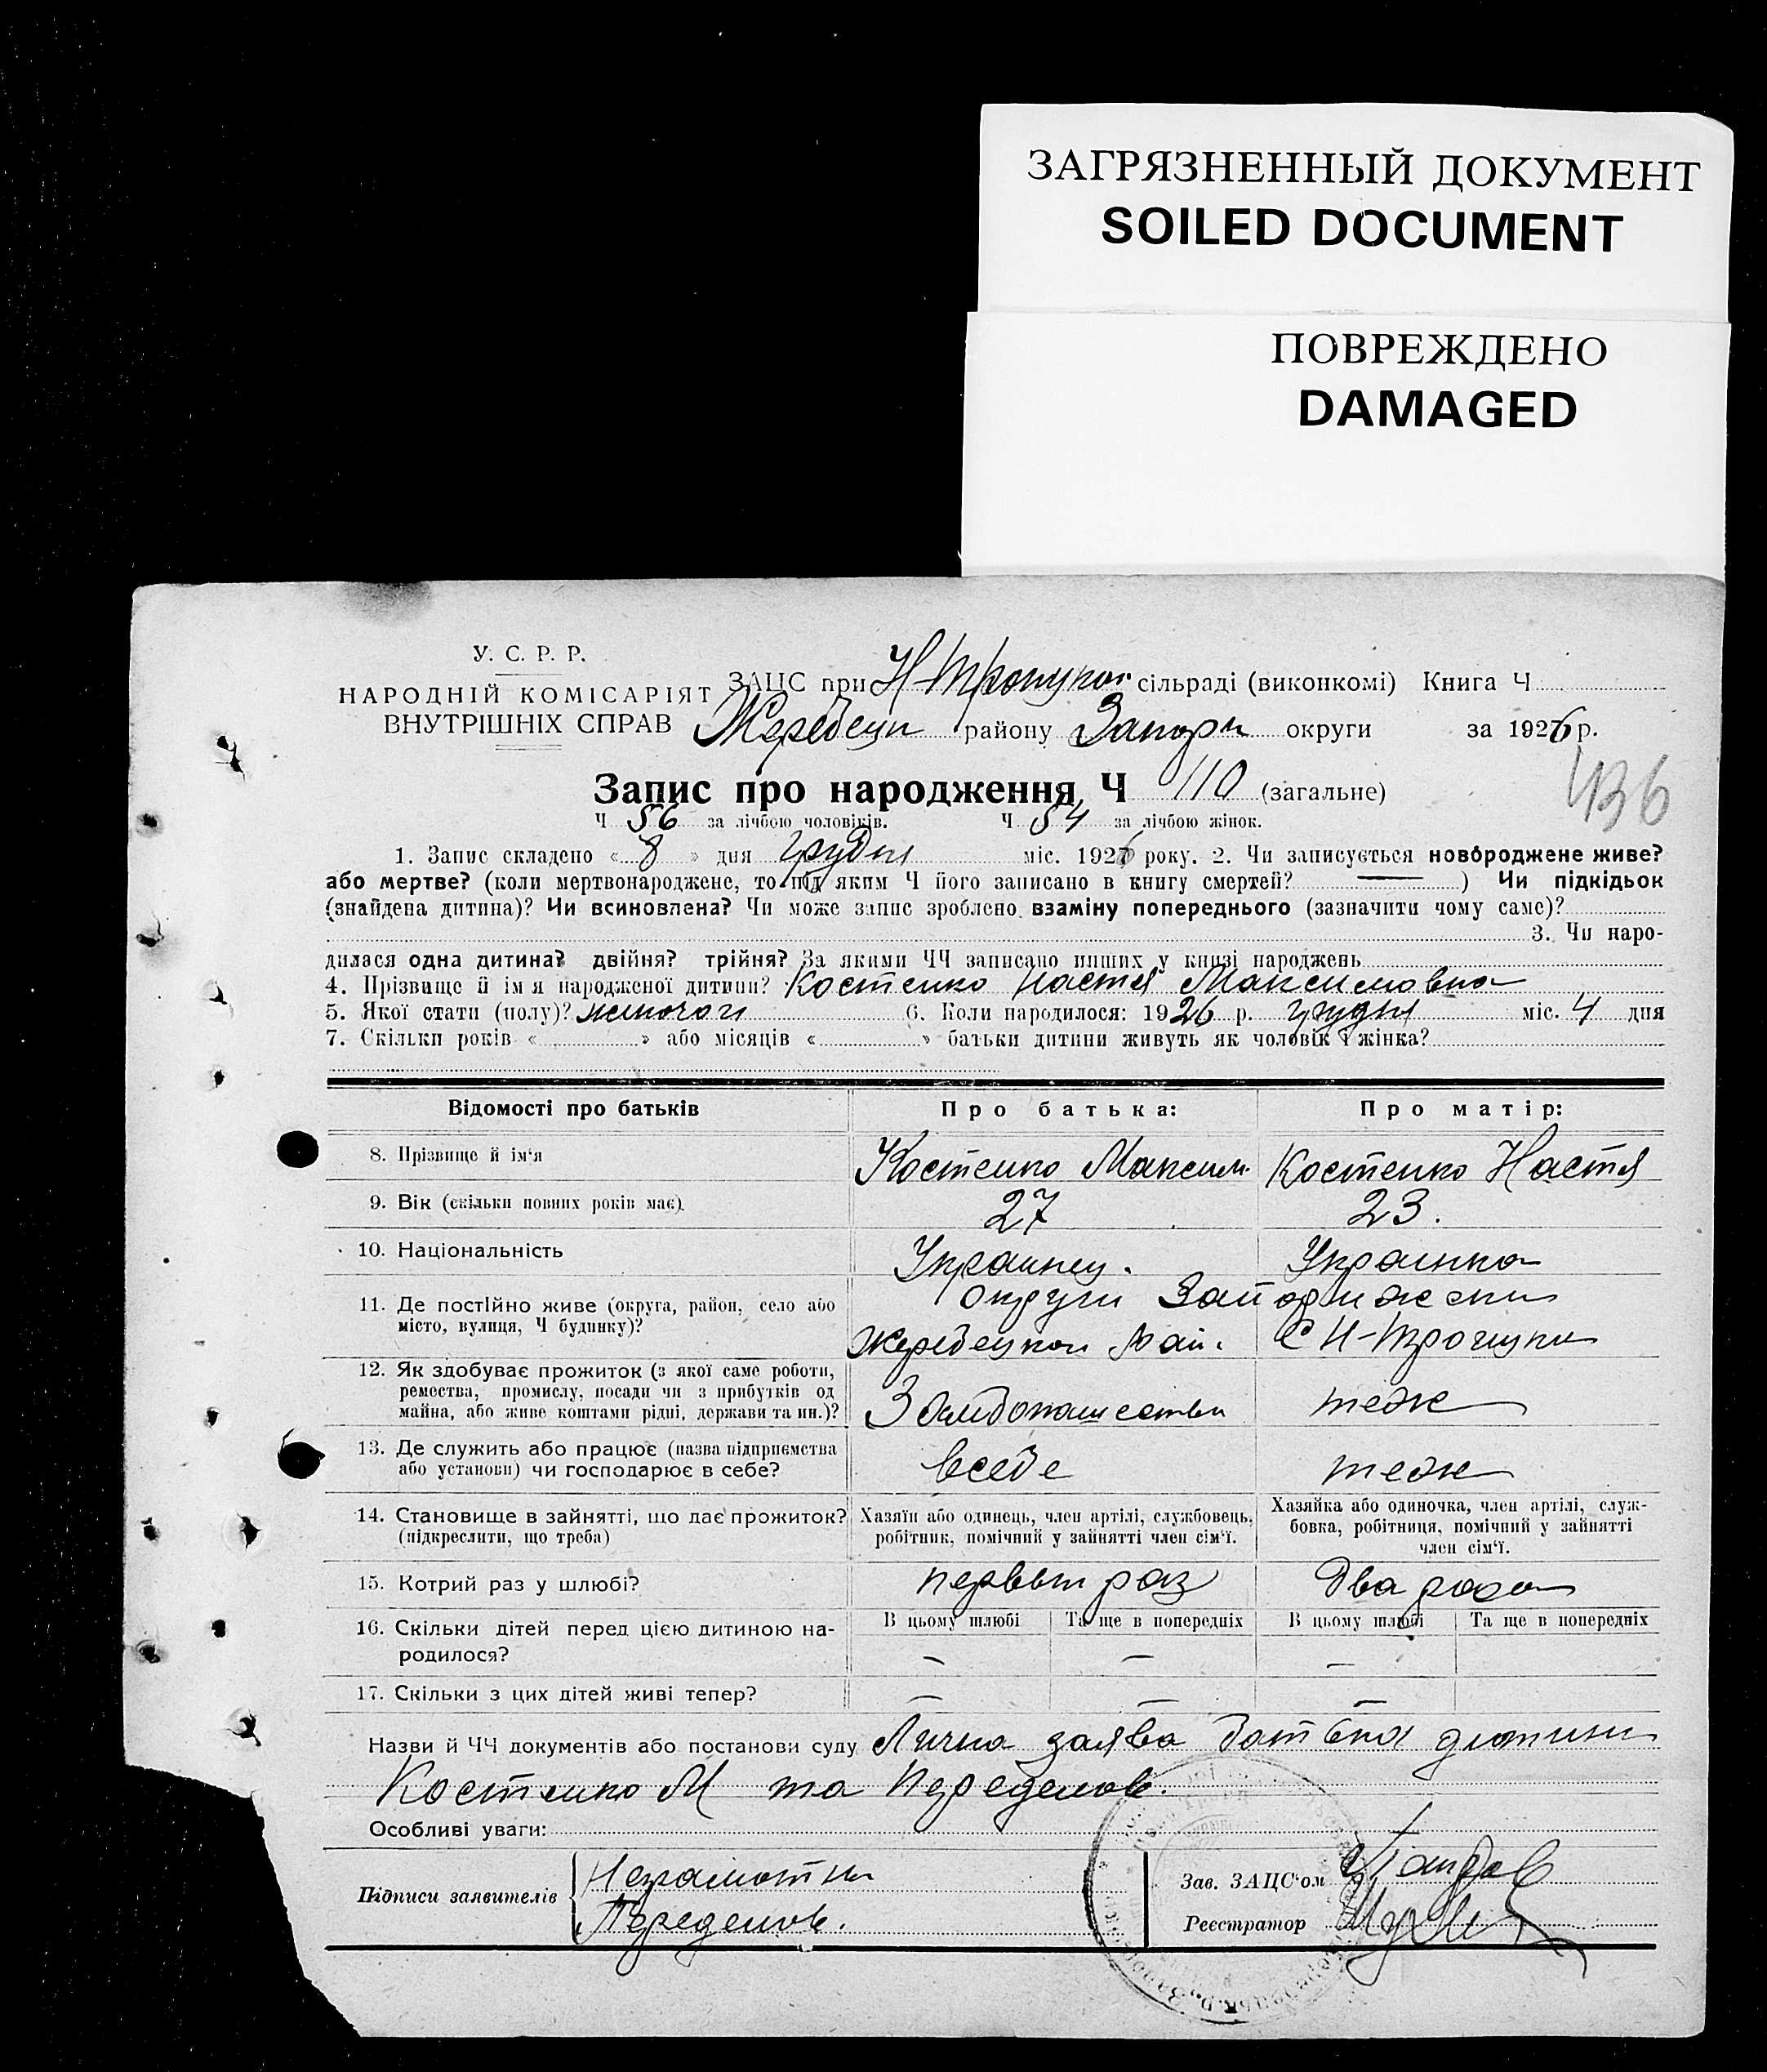 ЗАГРЯЗНЕННЫЙ ДОКУМЕНТ
SOILED DOCUMENT
ПОВРЕЖДЕНО
DAMAGED
У. С. Р. Р.
НАРОДНІЙ КОМІСАРІЯТ
ВНУТРІШНІХ СПРАВ
ЗАЦС при сільраді (виконкомі) Книга Ч
Жеребецк району Запорж округи за 1926 р.
Запис про народження Ч 110 (загальне)
436
Ч 56 за лічбою чоловіків. Ч 54 за лічбою жінок.
1. Запис складено « 8 » дня грудня міс. 1926 року. 2. Чи записується новороджене живе?
або мертве? (коли мертвонароджене, то під яким Ч його записано в книгу смертей? — ) Чи підкідьок
(знайдена дитина)? Чи всиновлена? Чи може запис зроблено взаміну попереднього (зазначити чому саме)?
3. Чи наро-
дилася одна дитина? двійня? трійня? За якими ЧЧ записано инших у книзі народжень
4. Прізвище й ім'я народженої дитини? Костенко Настя Максимовна
5. Якої стати (полу)? женочог 6. Коли народилося: 1926 р. грудня міс. 4 дня
7. Скільки років « » або місяців « » батьки дитини живуть як чоловік і жінка?
Відомості про батьків Про батька: Про матір:
8. Прізвище й ім'я Костенко Максим Костенко Настя
9. Вік (скільки повних років має) 27 23.
10. Національність Украинец. Украинка
11. Де постійно живе (округа, район, село або округи Запорижски
місто, вулиця, Ч будинку)? Жеребецкои Рай. С Н-Трочцки
12. Як здобуває прожиток (з якої саме роботи,
ремества, промислу, посади чи з прибутків од
майна, або живе коштами рідні, держави та ин.)? теж
13. Де служить або працює (назва підприємства
або установи) чи господарює в себе? всебе теж
14. Становище в зайнятті, що дає прожиток?
(підкреслити, що треба)
Хазяїн або одинець, член артілі, службовець,
робітник, помічний у зайнятті член сім'ї.
Хазяйка або одиночка, член артілі, служ-
бовка, робітниця, помічний у зайнятті
член сім'ї.
15. Котрий раз у шлюбі? первый раз два раза
16. Скільки дітей перед цією дитиною на-
родилося?
В цьому шлюбі Та ще в попередніх В цьому шлюбі Та ще в попередніх
— — —
17. Скільки з цих дітей живі тепер? — — —
Назви й ЧЧ документів або постанови суду Лична заява батька дитини
Костенко М та
Особливі уваги:
Підписи заявителів Неграмотни
Зав. ЗАЦС'ом
Реєстратор